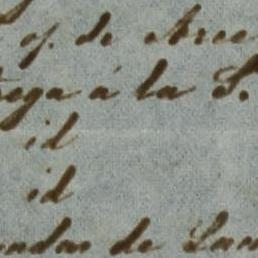 of. de Arce
rega á la S.
id
id
endas de Lan